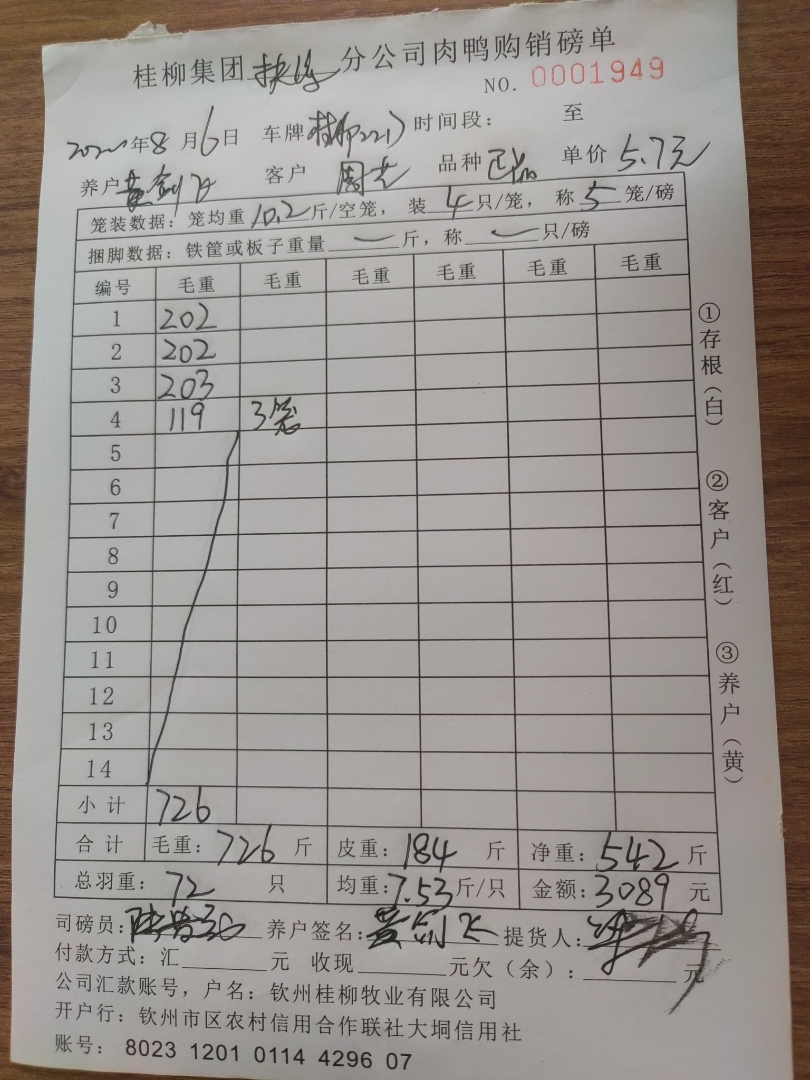 桂柳集团 分公司肉鸭购销磅单
NO. 0001949
年8月6日 车牌桂柳2217 时间段: 至
养户黄剑飞 客户 周志 品种 单价5.7元
笼装数据: 笼均重10.2斤/空笼, 装4只/笼, 称5笼/磅
捆脚数据: 铁筐或板子重量 — 斤, 称 — 只/磅
编号 毛重 毛重 毛重 毛重 毛重 毛重
1 202
2 202
3 203
4 119 3笼
5
6
7
8
9
10
11
12
13
14
小计 726
合计 毛重: 726斤 皮重: 184斤 净重: 542斤
总羽重: 72只 均重: 7.53斤/只 金额: 3089元
司磅员: 养户签名: 黄剑飞 提货人:
付款方式: 汇 元 收现 元欠(余): 元
公司汇款账号, 户名: 钦州桂柳牧业有限公司
开户行: 钦州市区农村信用合作联社大垌信用社
账号: 8023 1201 0114 4296 07
①存根(白)
②客户(红)
③养户(黄)